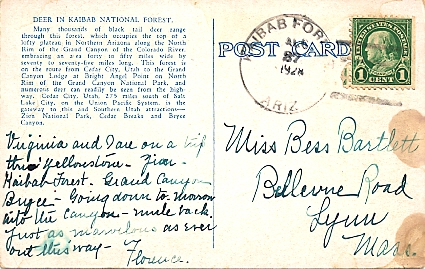 DEER IN KAIBAB NATIONAL FOREST.
Many thousands of black tail deer range
through this forest, which occupies the top of a
lofty plateau in Northern Arizona along the North
Rim of the Grand Canyon of the Colorado River,
embracing an area forty to fifty miles wide by
seventy to seventy-five miles long. This forest is
on the route from Cedar City, Utah to the Grand
Canyon Lodge at Bright Angel Point on North
Rim of the Grand Canyon National Park, and
numerous deer can readily be seen from the high-
way. Cedar City, Utah, 275 miles south of Salt
Lake City, on the Union Pacific System, is the
gateway to this and Southern Utah attractions—
Zion National Park, Cedar Breaks and Bryce
Canyon.
Virginia and I are on a trip
thru Yellowstone - Zion -
Kaibab Forest. Grand Canyon
Bryce - Going down tomorrow
into the Canyon - mule back.
Just as marvelous as ever
out this way -
Florence.
POST CARD
KAIBAB FOREST
1928
ARIZ.
UNITED STATES POSTAGE
1 CENT 1
Miss Bess Bartlett
Bellevue Road
Lynn
Mass.